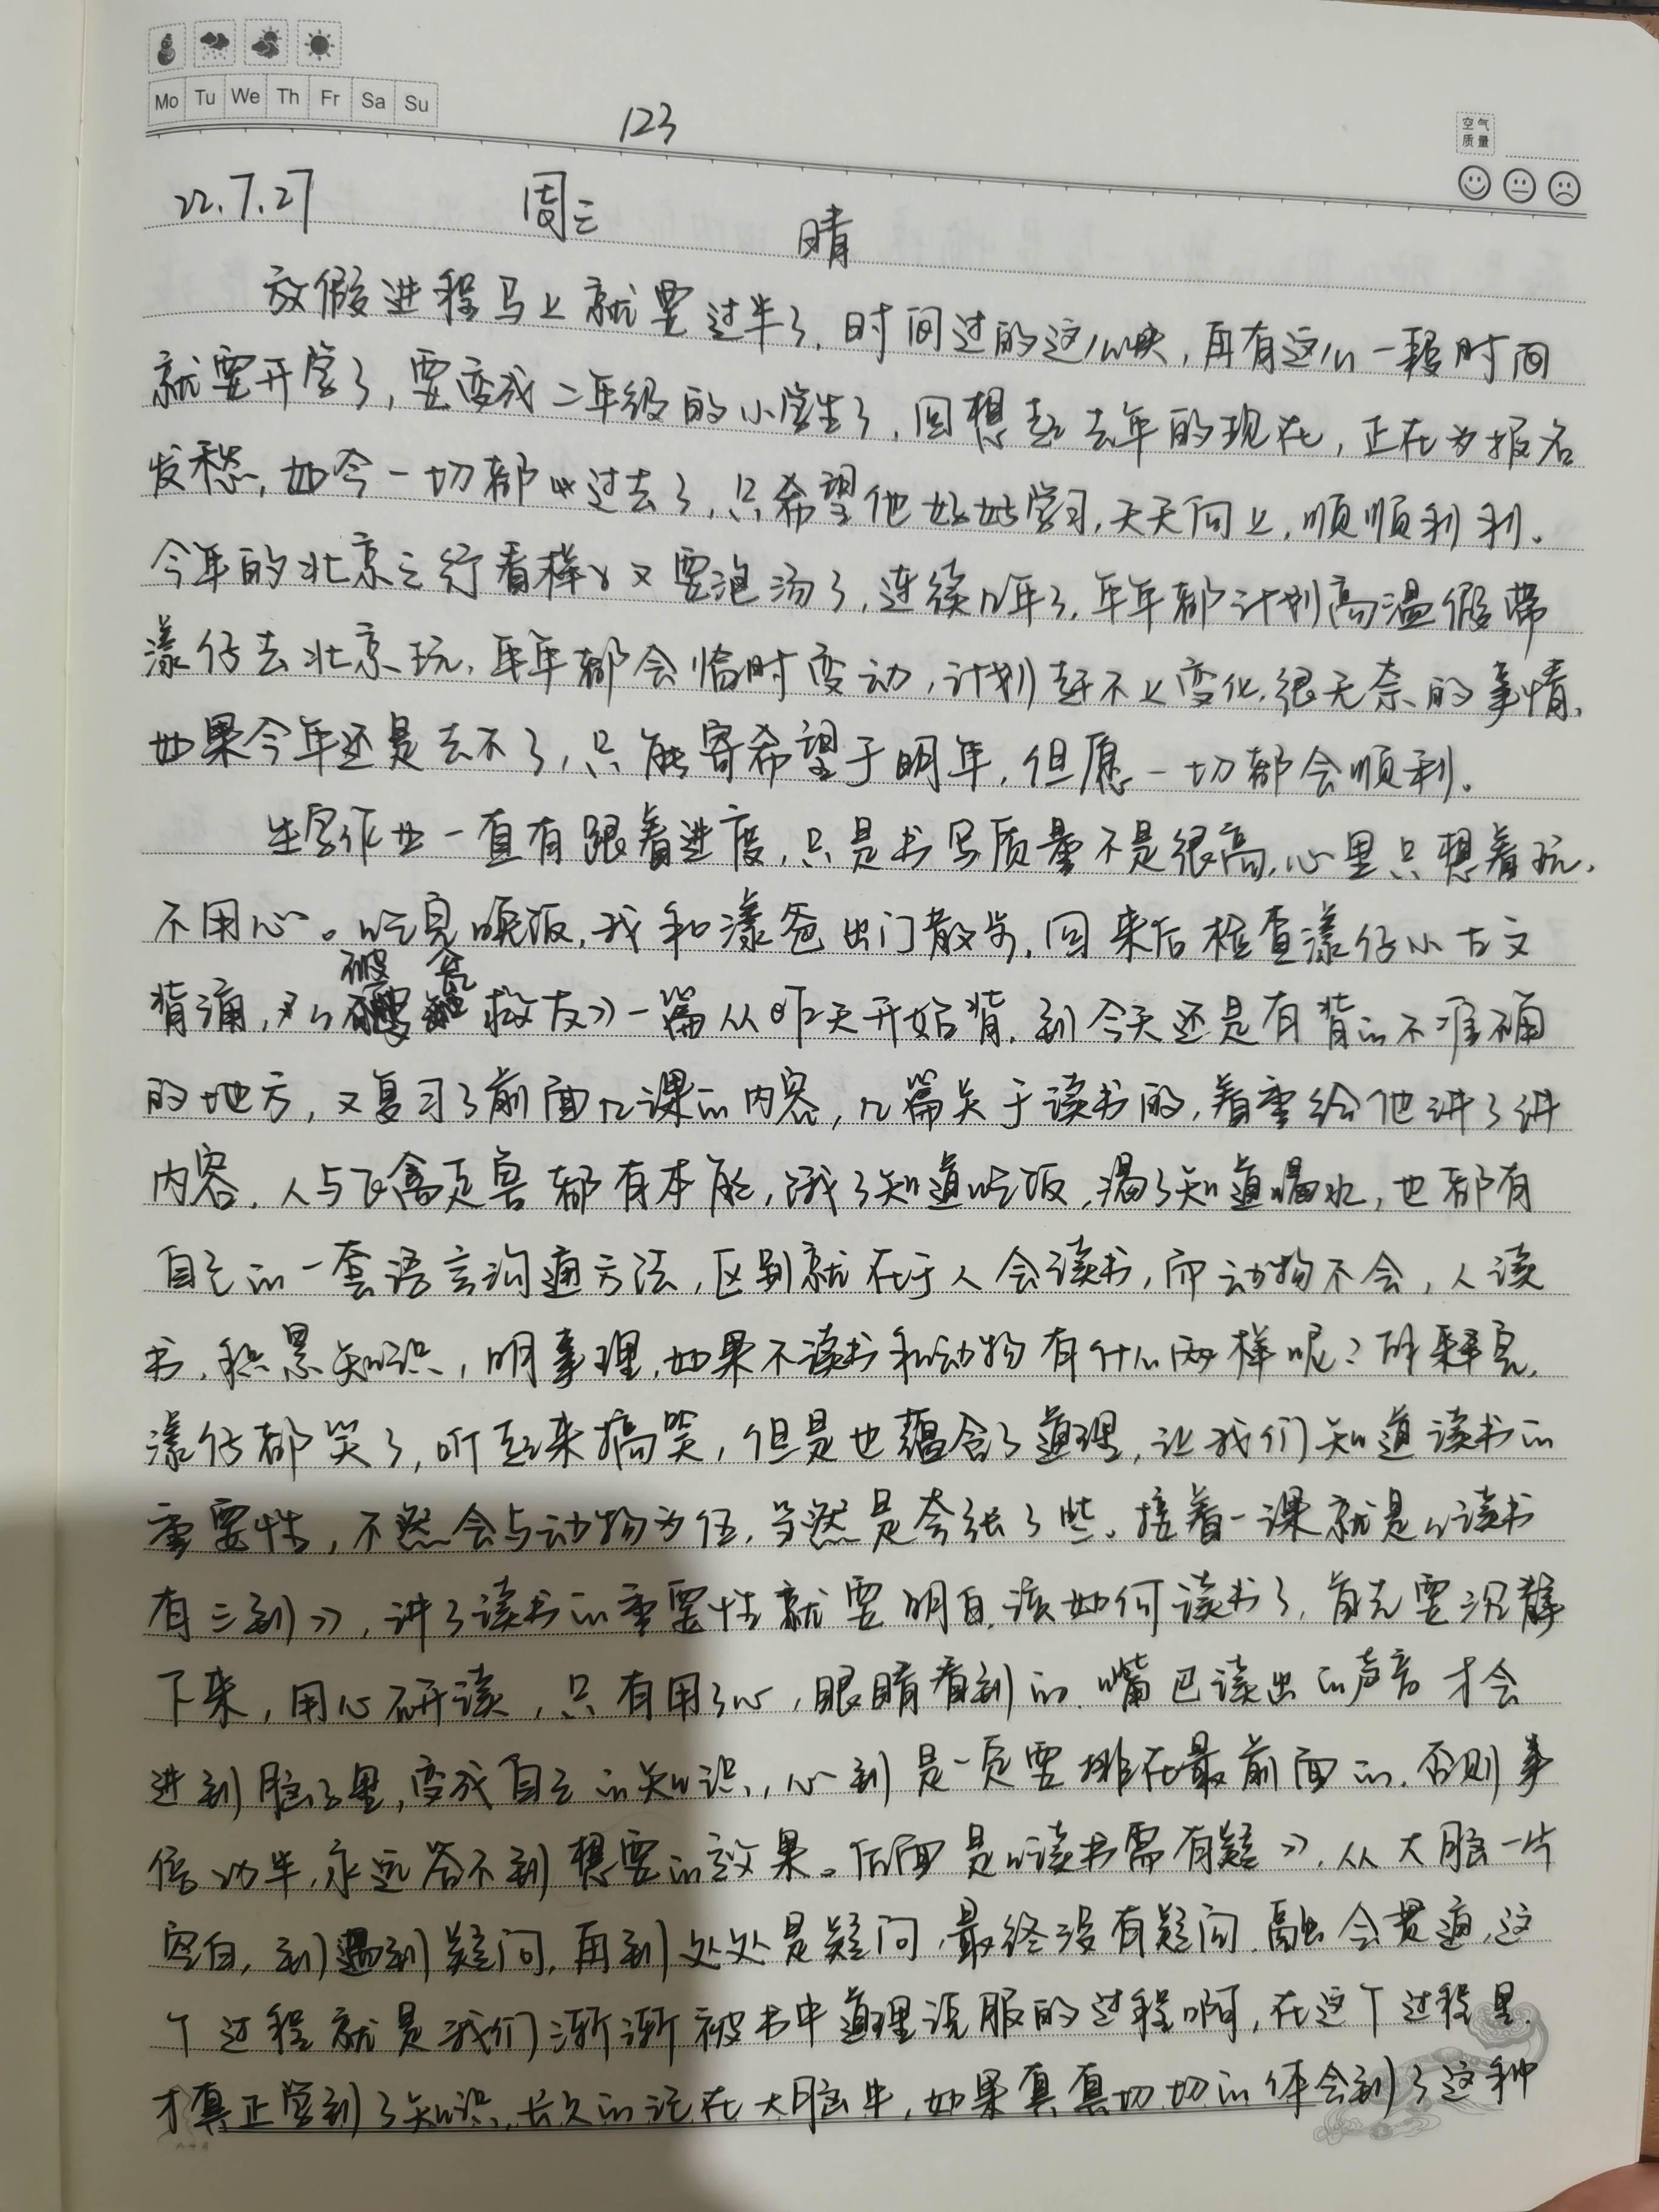 Mo Tu We Th Fr Sa Su
123
空气
质量
22.7.27 周三 晴
放假进程马上就要过半了,时间过的这么快,再有这么一段时间
就要开学了,要变成二年级的小学生了,回想起去年的现在,正在为报名
发愁,如今一切都过去了,只希望他好好学习,天天向上,顺顺利利。
今年的北京之行看样子又要泡汤了,连续几年了,年年都计划高温假带
漾仔去北京玩,年年都会临时变动,计划赶不上变化,很无奈的事情,
如果今年还是去不了,只能寄希望于明年,但愿一切都会顺利。
生字作业一直有跟着进度,只是书写质量不是很高,心里只想着玩,
不用心。吃完晚饭,我和漾爸出门散步,回来后检查漾仔小古文
背诵,对《破瓮救友》一篇从昨天开始背,到今天还是有背的不准确
的地方,又复习了前面几课的内容,几篇关于读书的,着重给他讲了讲
内容,人与飞禽走兽都有本能,饿了知道吃饭,渴了知道喝水,也都有
自己的一套语言沟通方法,区别就在于人会读书,而动物不会,人读
书,积累知识,明事理,如果不读书和动物有什么两样呢?解释完,
漾仔都笑了,听起来搞笑,但是也蕴含了道理,让我们知道读书的
重要性,不然会与动物为伍,当然是夸张了些。接着一课就是《读书
有三到》,讲了读书的重要性就要明白该如何读书了,首先要沉静
下来,用心研读,只有用了心,眼睛看到的,嘴巴读出的声音才会
进到脑子里,变成自己的知识,心到是一定要排在最前面的,否则事
倍功半,永远答不到想要的效果。后面是《读书需有疑》,从大脑一片
空白,到遇到疑问,再到处处是疑问,最终没有疑问,融会贯通,这
个过程就是我们渐渐被书中道理说服的过程啊,在这个过程里,
才真正学到了知识,长久的记在大脑中,如果真真切切的体会到了这种